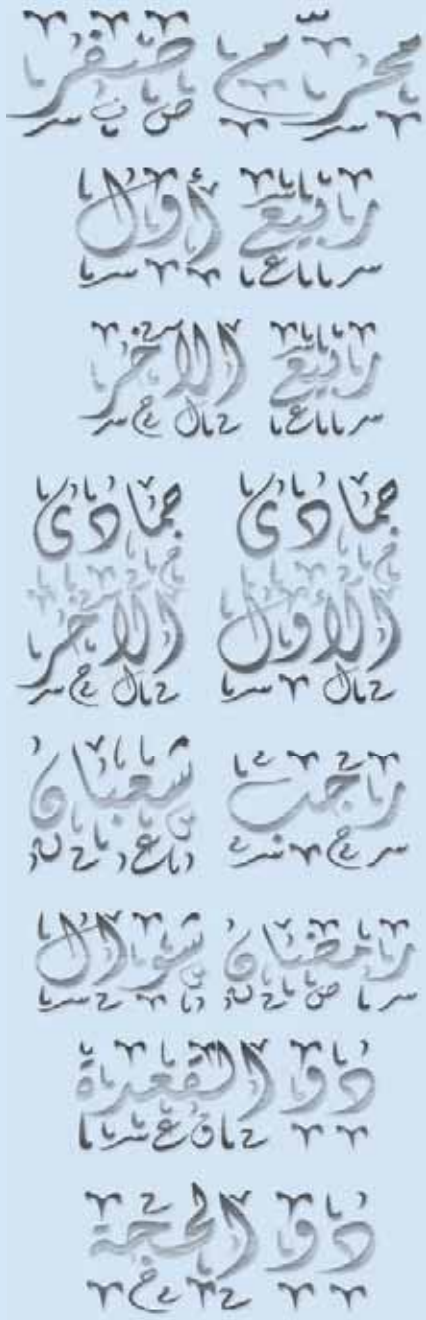 محرّم صفر
ربيع أوّل
ربيع الآخر
جمادى جمادى
الأوّل الآخر
رجب شعبان
رمضان شوّال
ذو القعدة
ذو الحجة